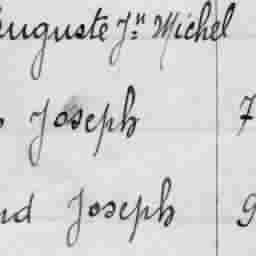 Auguste Jn Michel
Joseph 7
nd Joseph 9